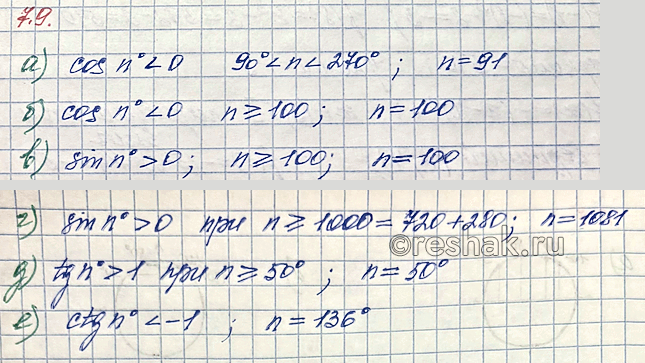 7.9.
а) cos n° < 0   90° < n < 270° ;   n = 91
б) cos n° < 0   n ≥ 100 ;   n = 100
в) sin n° > 0 ;   n ≥ 100 ;   n = 100
г) sin n° > 0 при n ≥ 1000 = 720 + 280 ;   n = 1081
д) tg n° > 1 при n ≥ 50° ;   n = 50°
е) ctg n° < -1 ;   n = 136°
©reshak.ru